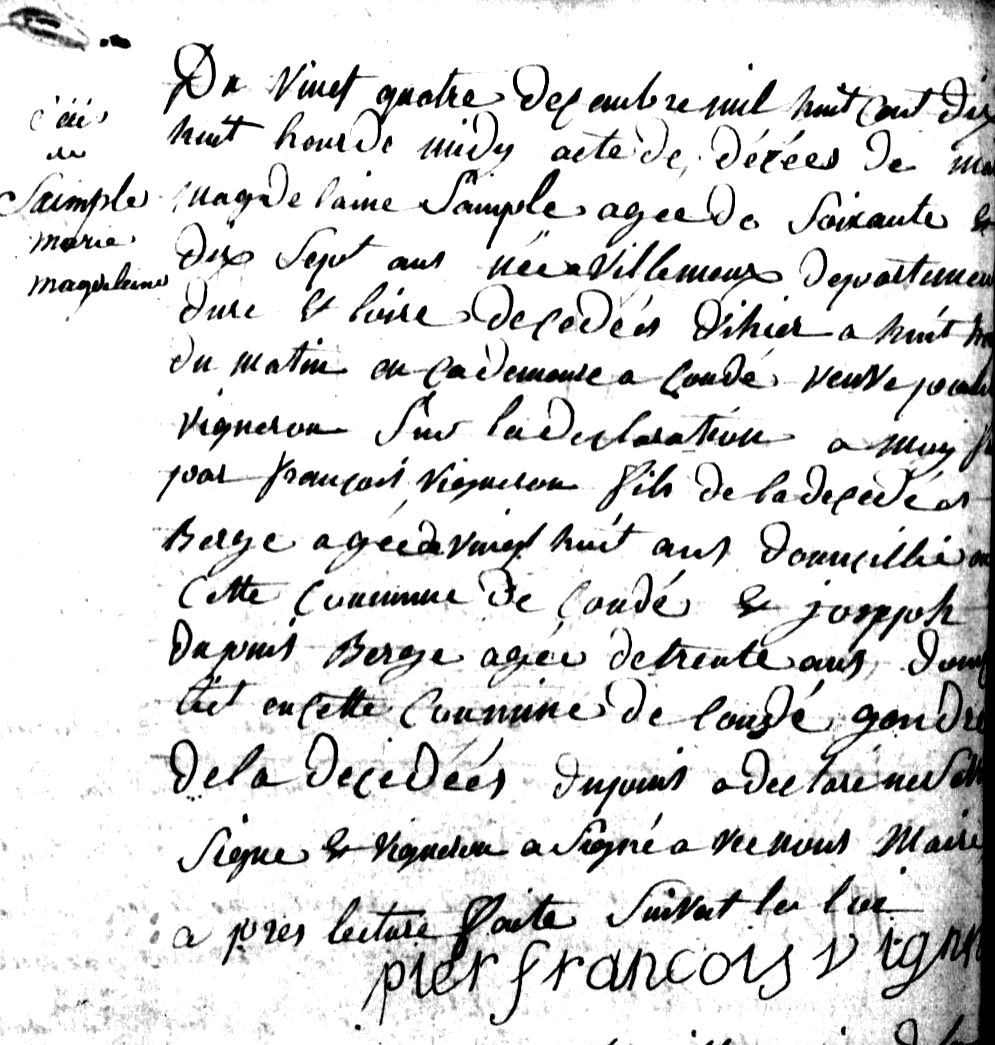 de
Saimple
marie
magdelaine
Du Vinct quatre decembre mil huit cent dix
huit heure de midy acte de décées de
magdelaine Saimple agée de Soixante et
dix Sept ans née a Villemeux departement
dure et loire décedéés d'ihier a huit
du matin en ça demeure a Condé veuve
vigneron Sur la declaration a moy
par françois vigneron fils de la decedéés
Berge agée de vingt huit ans domicillié en
Cette Commune de Condé et joseph
dupuis Berge agée de trente ans
en cette Commune de Condé gendre
de la decedéés dupuis a declaré ne
Signe et vigneron a Signé avec nous Maire
a pres lecture faite Suivat la loi
pier françois vign